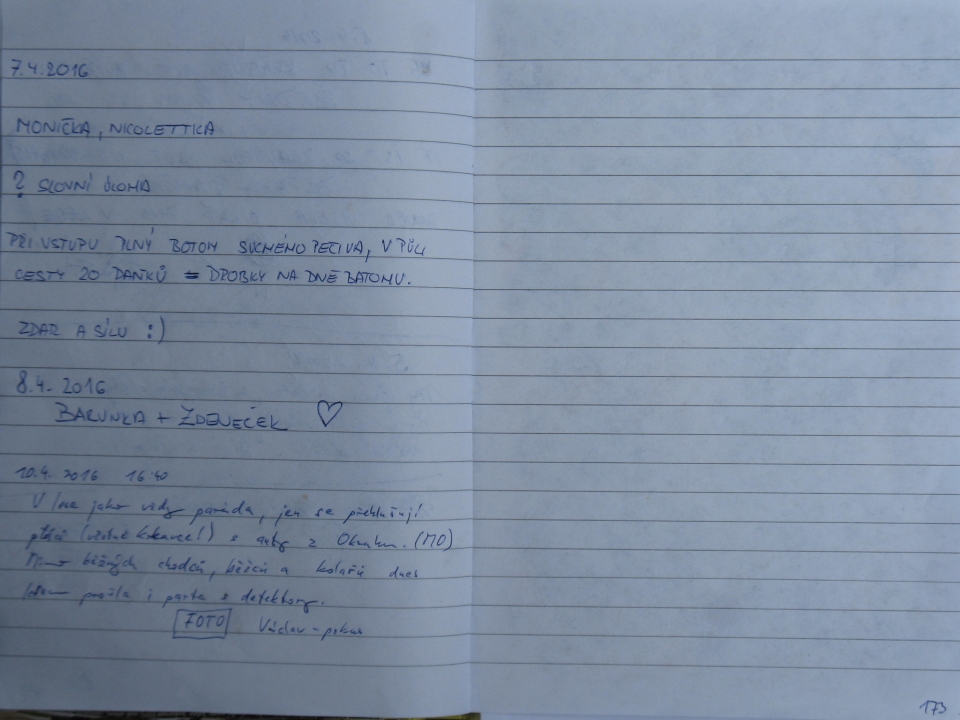 7.4.2016
MONIČKA, NICOLETTKA
? SLOVNÍ ÚLOHA
PŘI VSTUPU PLNÝ BOTOH SUCHÉHO PEČIVA, V PŮLI
CESTY 20 DAŇKŮ = DROBKY NA DNĚ BATOHU.
ZDAR A SÍLU :)
8.4. 2016
BARUNKA + ZDENEČEK ♡
10.4. 2016 16:40
V lese jako vždy paráda, jen se překřikují
ptáci (včetně kukaček!) s auty z Okruhu. (MO)
Mimo běžných chodců, běžců a kolařů dnes
lesem prošla i parta s detektory.
FOTO Václav
173